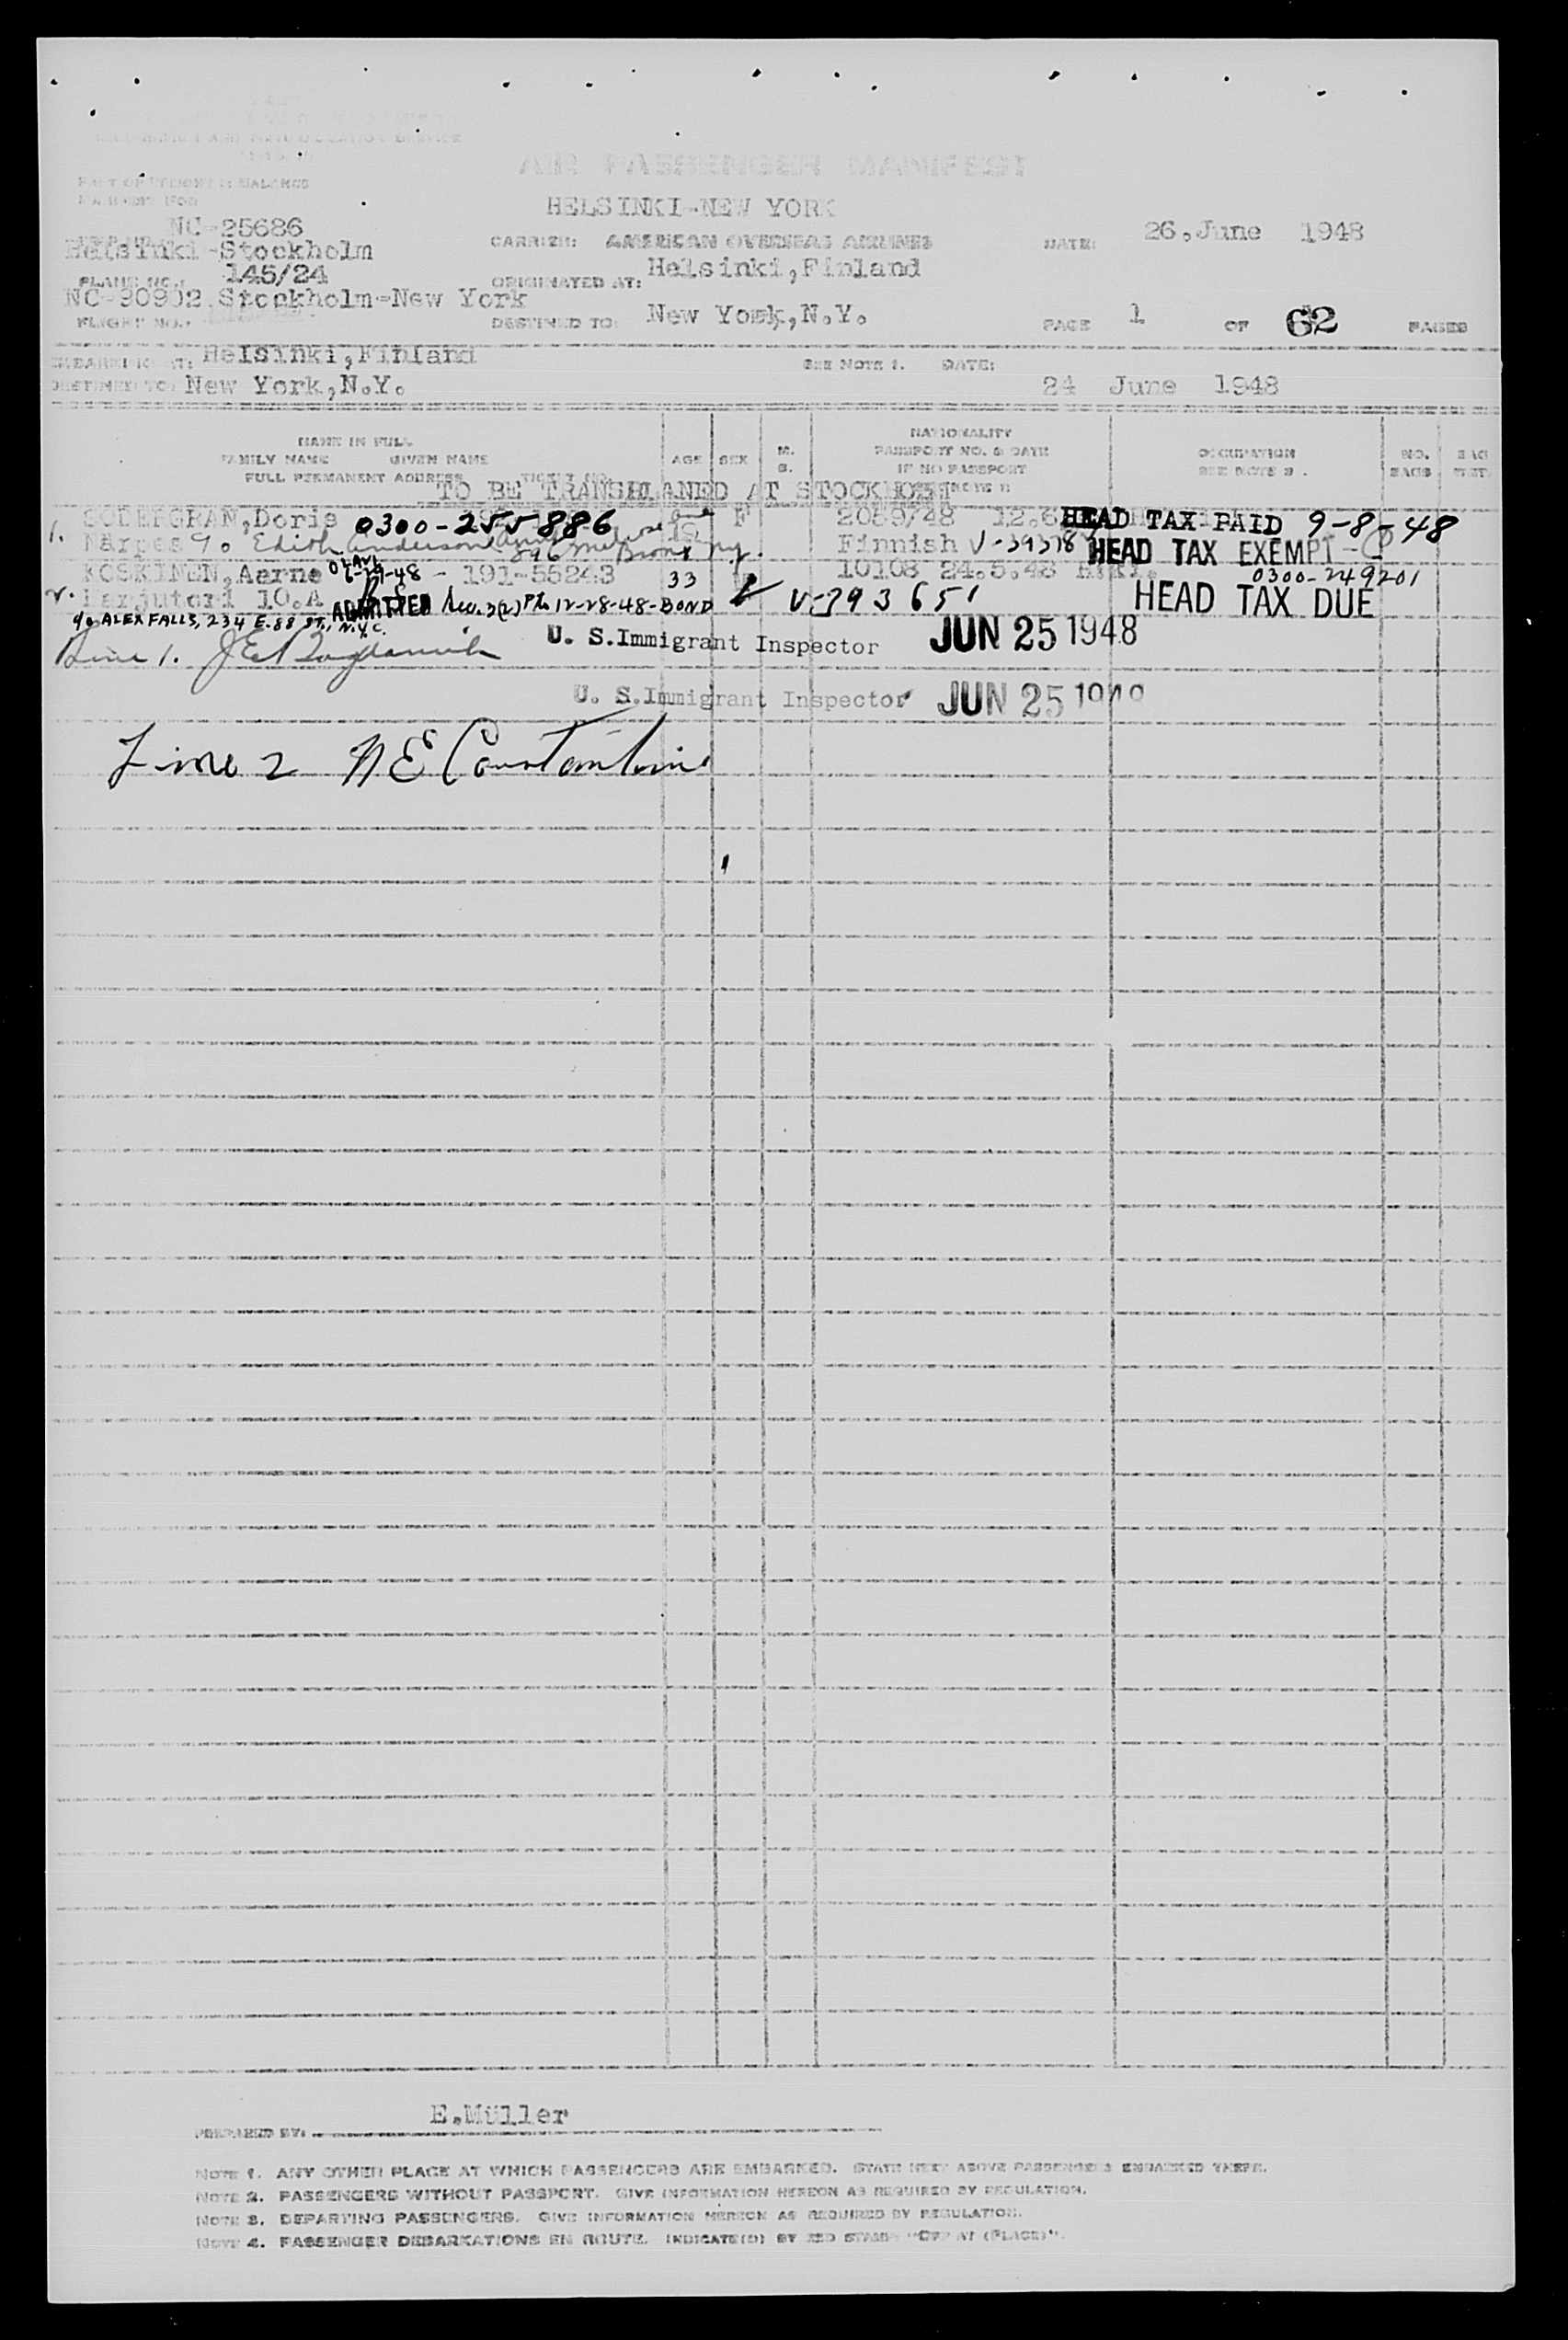 AIR PASSENGER MANIFEST
HELSINKI-NEW YORK
NC-25686
Helsinki-Stockholm
CARRIER: AMERICAN OVERSEAS AIRLINES
DATE: 26,June 1948
PLANE NO.: 145/24
ORIGINATED AT: Helsinki,Finland
NC-90902 Stockholm-New York
FLIGHT NO.:
DESTINED TO: New York,N.Y.
PAGE 1 OF 62 PAGES
EMBARKING AT: Helsinki,Finland
SEE NOTE 1. DATE:
DESTINED TO: New York,N.Y.
24 June 1948
NAME IN FULL
FAMILY NAME GIVEN NAME
FULL PERMANENT ADDRESS
AGE
SEX
M.
S.
NATIONALITY
PASSPORT NO. & DATE
IF NO PASSPORT
OCCUPATION
SEE NOTE 3.
NO.
BAGS
TO BE TRANSPLANED AT STOCKHOLM
1. SODERGRAN,Doris 0300-255886 F 2059/48 HEAD TAX PAID 9-8-48
Närpes % Edith Anderson 896 Melrose Bronx NY. Finnish V-39378 HEAD TAX EXEMPT
KOSKINEN,Aarne OLAVI 6-29-48 - 191-55243 33 10108 24.5.48 0300-249201
2. 10.A ADMITTED Sec. 3(2) 12-28-48-BOND V-393651 HEAD TAX DUE
% ALEX FALLS, 234 E.88 ST., N.Y.C.
Line 1. U. S.Immigrant Inspector JUN 25 1948
U. S.Immigrant Inspector JUN 25 1948
Line 2 N E Constantine
PREPARED BY: E.Müller
NOTE 1. ANY OTHER PLACE AT WHICH PASSENGERS ARE EMBARKED. STATE NEXT ABOVE PASSENGERS EMBARKED THERE.
NOTE 2. PASSENGERS WITHOUT PASSPORT. GIVE INFORMATION HEREON AS REQUIRED BY REGULATION.
NOTE 3. DEPARTING PASSENGERS. GIVE INFORMATION HEREON AS REQUIRED BY REGULATION.
NOTE 4. PASSENGER DEBARKATIONS EN ROUTE. INDICATE(D) BY RED STAMP "OFF AT (PLACE)".